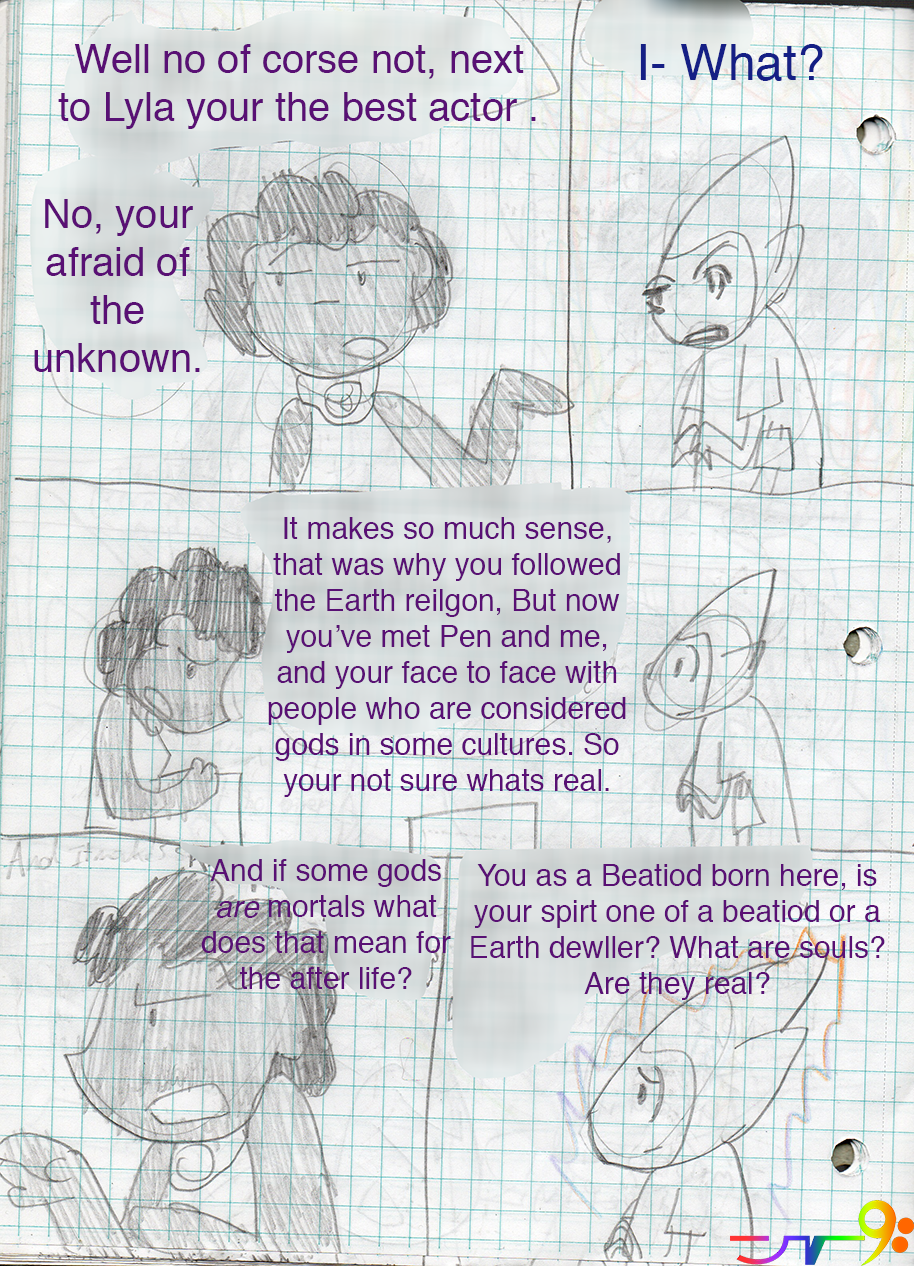 Well no of corse not, next
to Lyla your the best actor .
No, your
afraid of
the
unknown.
I- What?
It makes so much sense,
that was why you followed
the Earth reilgon, But now
you've met Pen and me,
and your face to face with
people who are considered
gods in some cultures. So
your not sure whats real.
And if some gods
are mortals what
does that mean for
the after life?
You as a Beatiod born here, is
your spirt one of a beatiod or a
Earth dewller? What are souls?
Are they real?